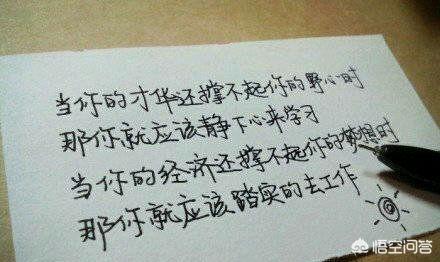 当你的才华还撑不起你的野心时
那你就应该静下心来学习
当你的经济还撑不起你的梦想时
那你就应该踏实的去工作
悟空问答